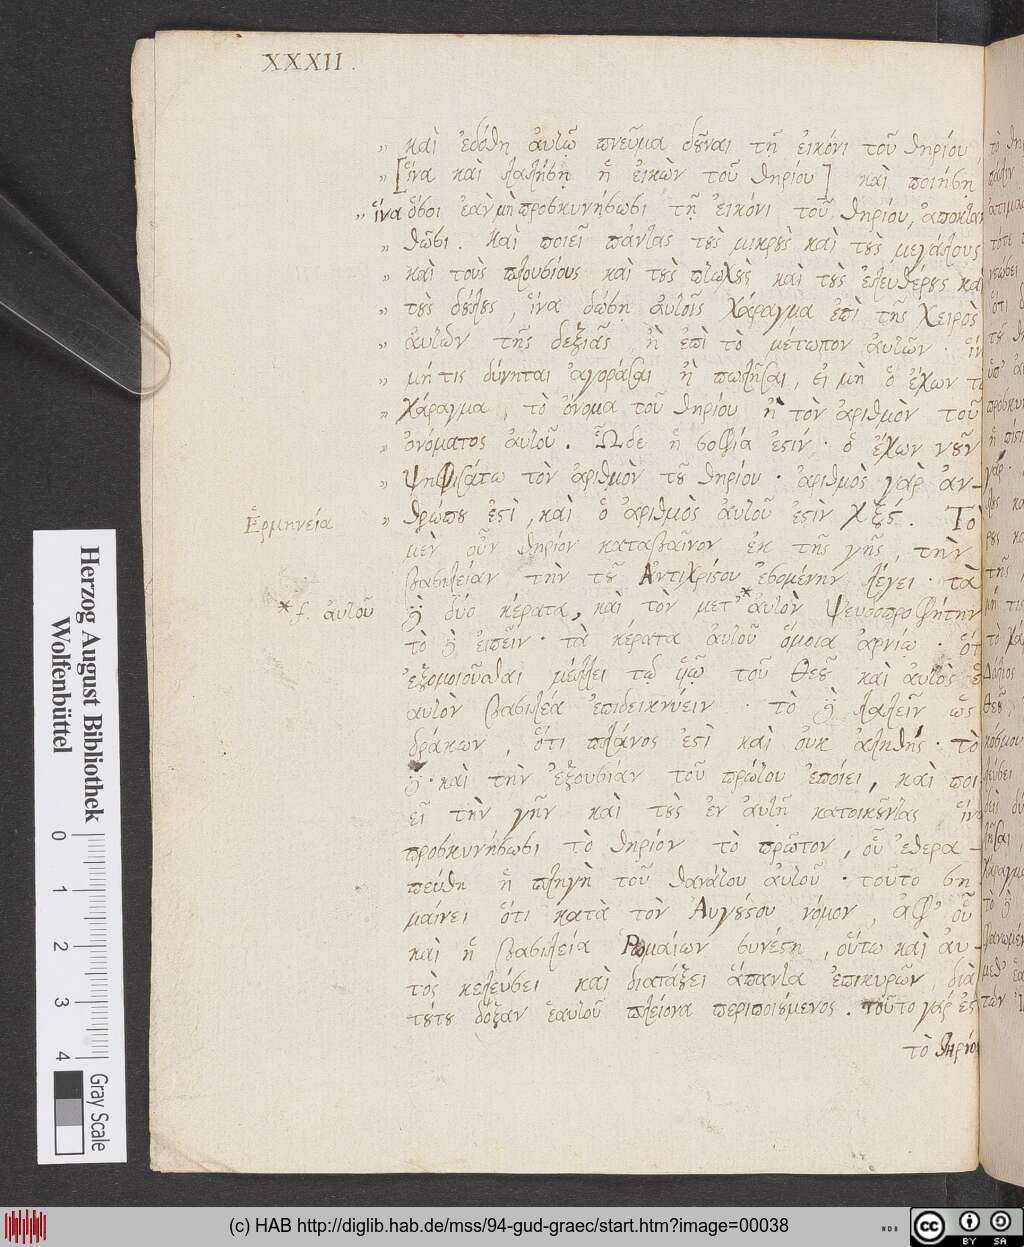 XXXII.
„ καὶ ἐδόθη ἀυτῷ πνεῦμα δȣ͂ναι τῇ ἐικόνι τοῦ θηρίου
„ [ἵνα καὶ λαλήσῃ ἡ ἐικὼν τοῦ θηρίου] καὶ ποιήσῃ
„ ἵνα ὅσοι ἐὰν μὴ προσκυνήσωσι τῇ ἐικόνι τοῦ θηρίου, ἀποκταν
„ θῶσι. Καὶ ποιεῖ πάντας τȣ̀ς μικρȣ̀ς καὶ τȣ̀ς μεγάλους
„ καὶ τοὺς πλουσίους καὶ τȣ̀ς πτωχȣ̀ς καὶ τȣ̀ς ἐλευθέρȣς καὶ
„ τȣ̀ς δȣ́λȣς, ἵνα δώσῃ ἀυτοῖς χάραγμα ἐπὶ τῆς χειρὸς
„ ἀυτῶν τῆς δεξιᾶς, ἢ ἐπὶ τὸ μέτωπον ἀυτῶν· ἵν
„ μή τις δύνηται ἀγοράσαι ἢ πωλῆσαι, ἐι μὴ ὁ ἔχων τὸ
„ χάραγμα, τὸ ὄνομα τοῦ θηρίου ἢ τὸν ἀριθμὸν τοῦ
„ ὀνόματος ἀυτοῦ. Ὧδε ἡ σοφία ἐστίν· ὁ ἔχων νȣ͂ν
„ ψηφισάτω τὸν ἀριθμὸν τȣ͂ θηρίου· ἀριθμὸς γὰρ ἀν-
Ἑρμηνεία
„ θρώπȣ ἐστὶ, καὶ ὁ ἀριθμὸς ἀυτοῦ ἐστὶν χξϛ́. Τὸ
μὲν οὖν θηρίον καταβαῖνον ἐκ τῆς γῆς, τὴν
βασιλείαν τὴν τȣ͂ Ἀντιχρίστου ἐσομένην λέγει· τὰ
* f. ἀυτοῦ
δὲ δύο κέρατα, καὶ τὸν μετ' *ἀυτὸν ψευδοπροφήτην
τὸ δὲ ἐιπεῖν· τὰ κέρατα ἀυτοῦ ὅμοια ἀρνίῳ ὅτ
ἐξομοιοῦσθαι μέλλει τῷ ὑῷ τοῦ Θεȣ͂ καὶ ἀυτὸς ἑ
αυτὸν βασιλέα ἐπιδεικνύειν· τὸ δὲ λαλεῖν ὡς
δράκων, ὅτι πλάνος ἐστὶ καὶ ὀυκ ἀληθής· τὸ
δὲ· καὶ τὴν ἐξουσίαν τοῦ πρώτου ἐποίει, καὶ ποι
εῖ τὴν γῆν καὶ τȣ̀ς ἐν ἀυτῇ κατοικȣ͂ντας ἵνα
προσκυνήσωσι τὸ θηρίον τὸ πρῶτον, οὗ ἐθερα-
πεύθη ἡ πληγὴ τοῦ θανάτου ἀυτοῦ· τοῦτο ση
μαίνει ὅτι κατὰ τὸν Αυγȣ́στου νόμον, ἀφ' οὗ
καὶ ἡ βασιλεία Ρωμαίων συνέστη, οὕτω καὶ ἀυ-
τὸς κελεύσει καὶ διατάξει ἅπαντα ἐπικυρῶν διὰ
τȣ́τȣ δόξαν ἑαυτοῦ πλείονα περιποιȣ́μενος. Τοῦτο γάρ ἐστ
τὸ θηρίον
Herzog August Bibliothek
Wolfenbüttel
0 1 2 3 4
Gray Scale
(c) HAB http://diglib.hab.de/mss/94-gud-graec/start.htm?image=00038
WDB
cc BY SA